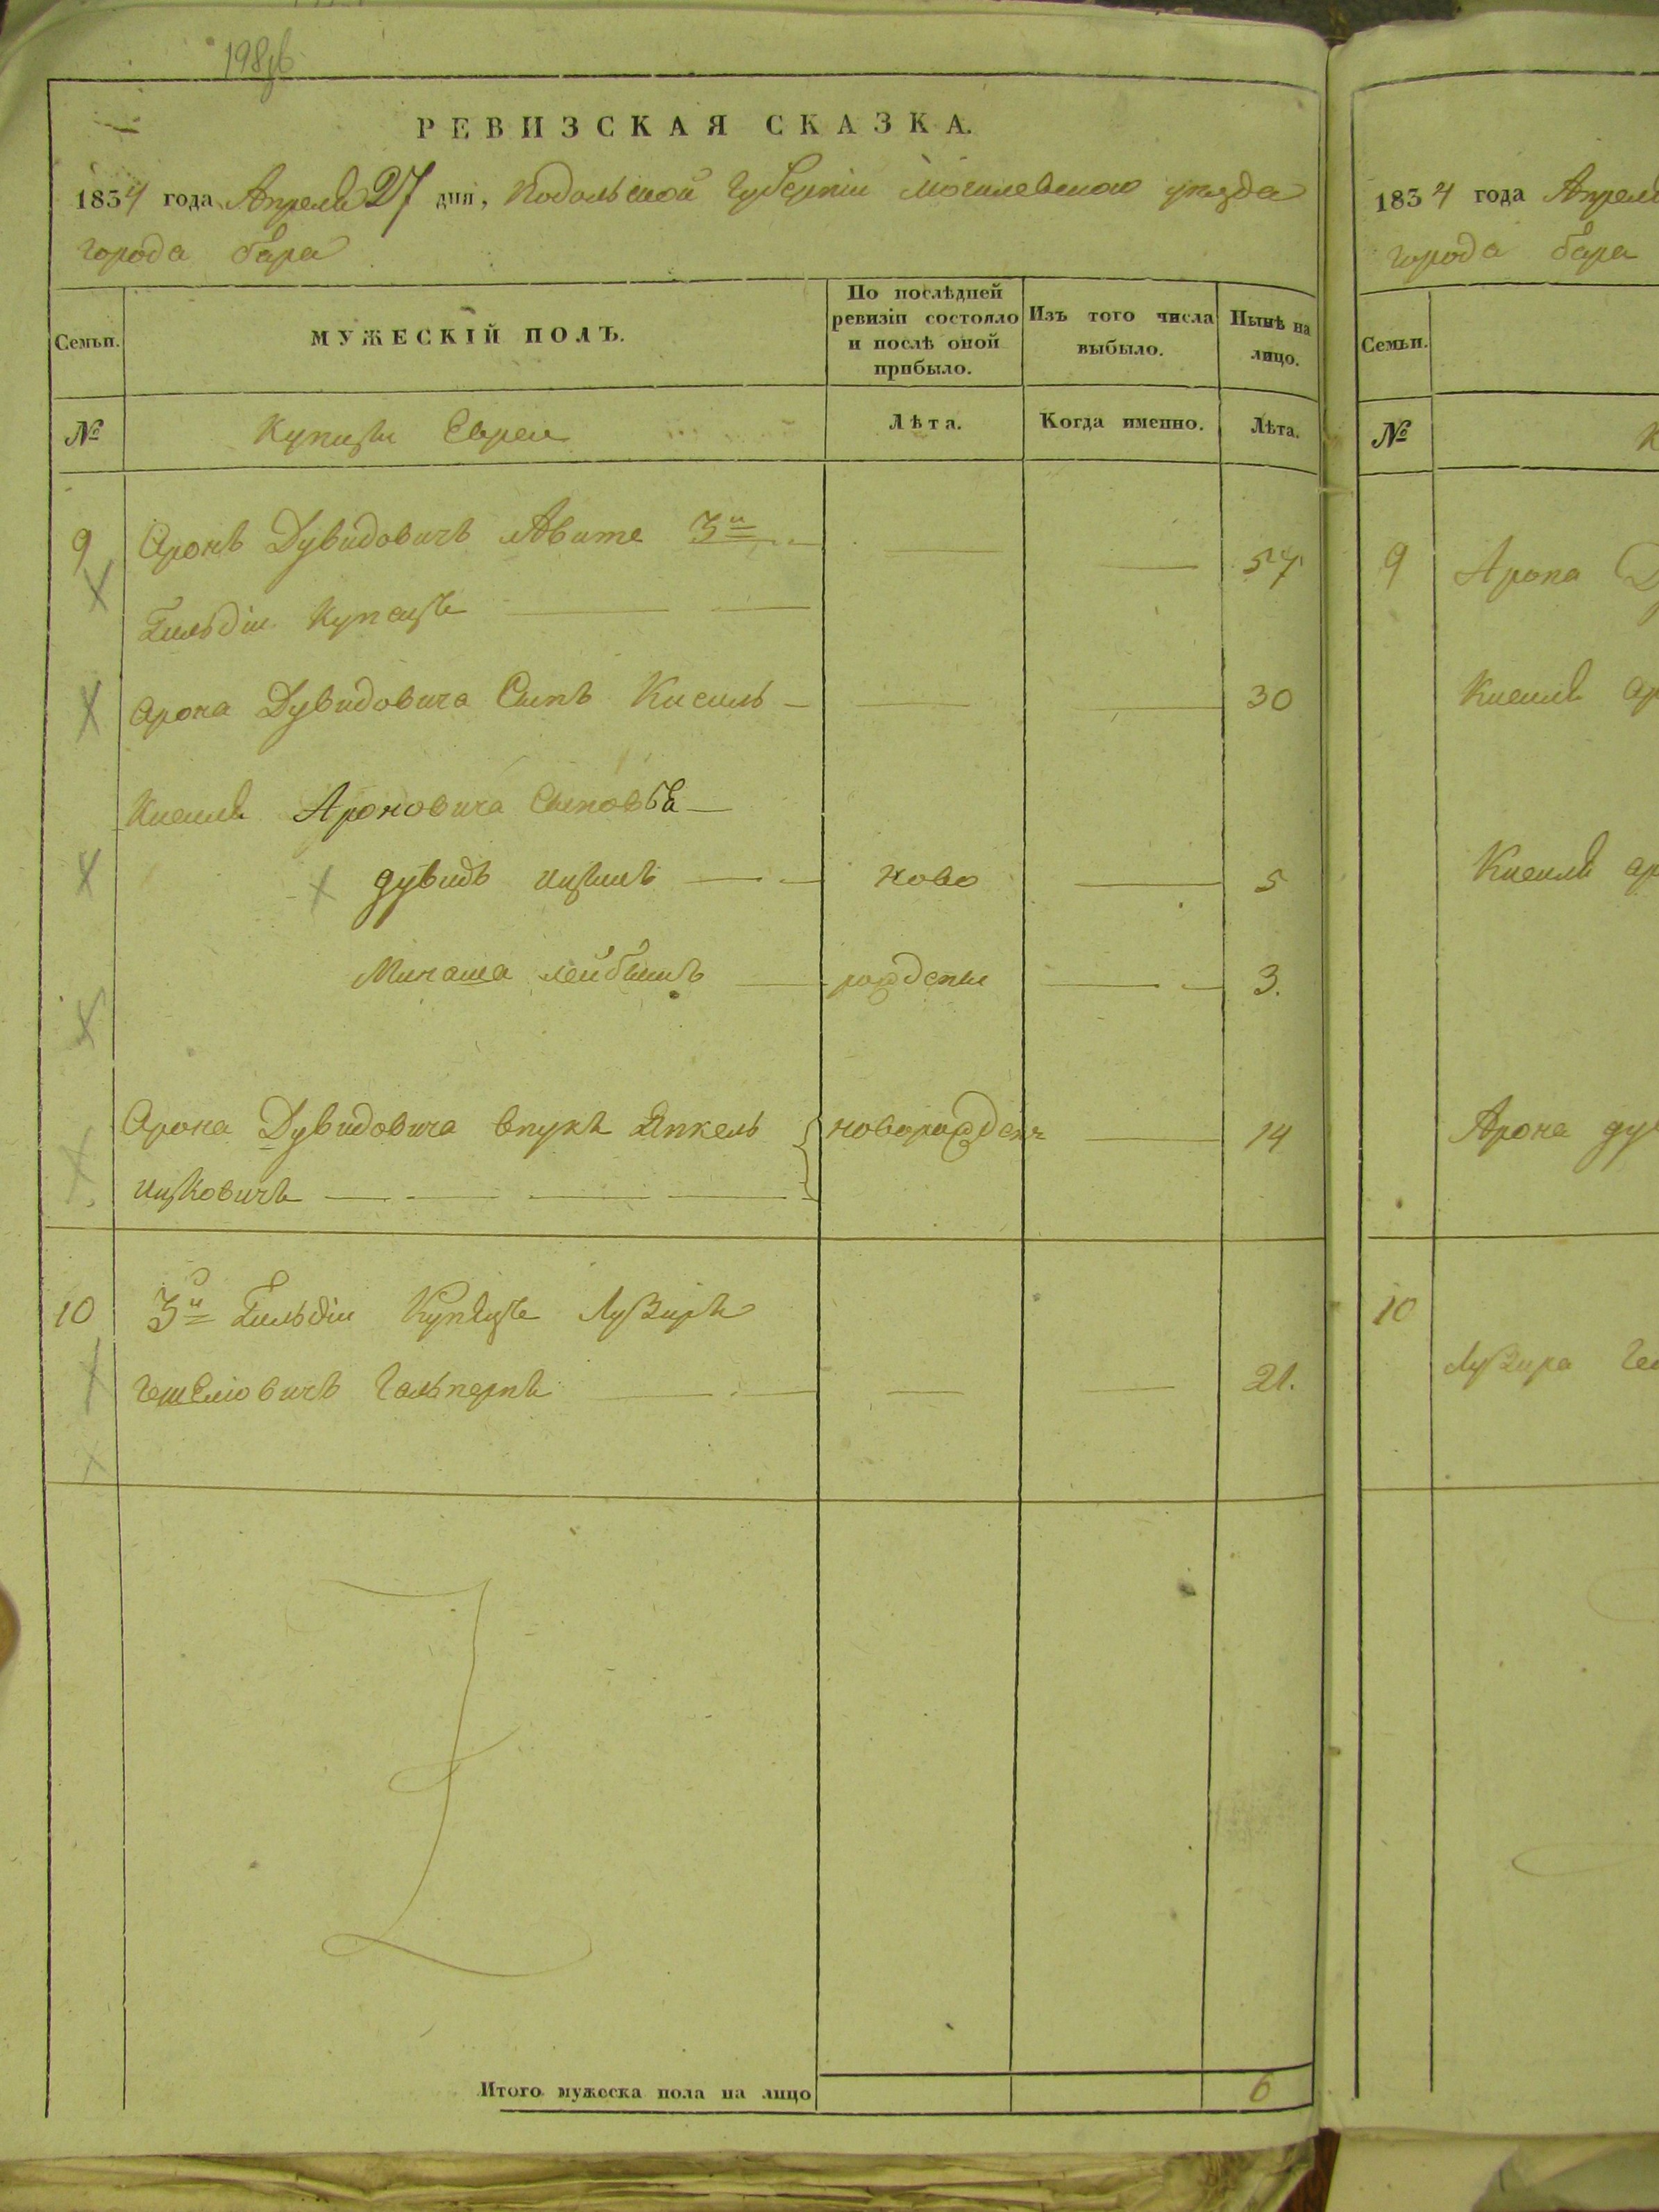 198
РЕВИЗСКАЯ СКАЗКА.
1834 года Апреля 27 дня, Подольской Губернии Могилевского уезда
города бара
Семьи.
МУЖЕСКІЙ ПОЛЪ.
По послѣдней ревизіи состояло и послѣ оной прибыло.
Изъ того числа выбыло.
Нынѣ на лицо.
№
Купцы Евреи
Лѣта.
Когда именно.
Лѣта.
9 Аронъ Дувидовичъ 3й 57
Гильдіи Купецъ
Арона Дувидовича Сынъ Кисиль 30
Кисиля Ароновича Сыновья
дувидъ ицыкъ ново 5
Минаша лейбышъ рожденны 3.
Арона Дувидовича внукъ Янкель новорожден 14
ицковичъ
10 3й Гильдіи Купецъ Лузиръ
Гешелiовичъ Гальпернъ 21.
Итого мужеска пола на лицо 6
1834 года Апреля
города бара
Семьи.
№
9 Арона
Кисиля
Кисиля
Арона
10
Лузира